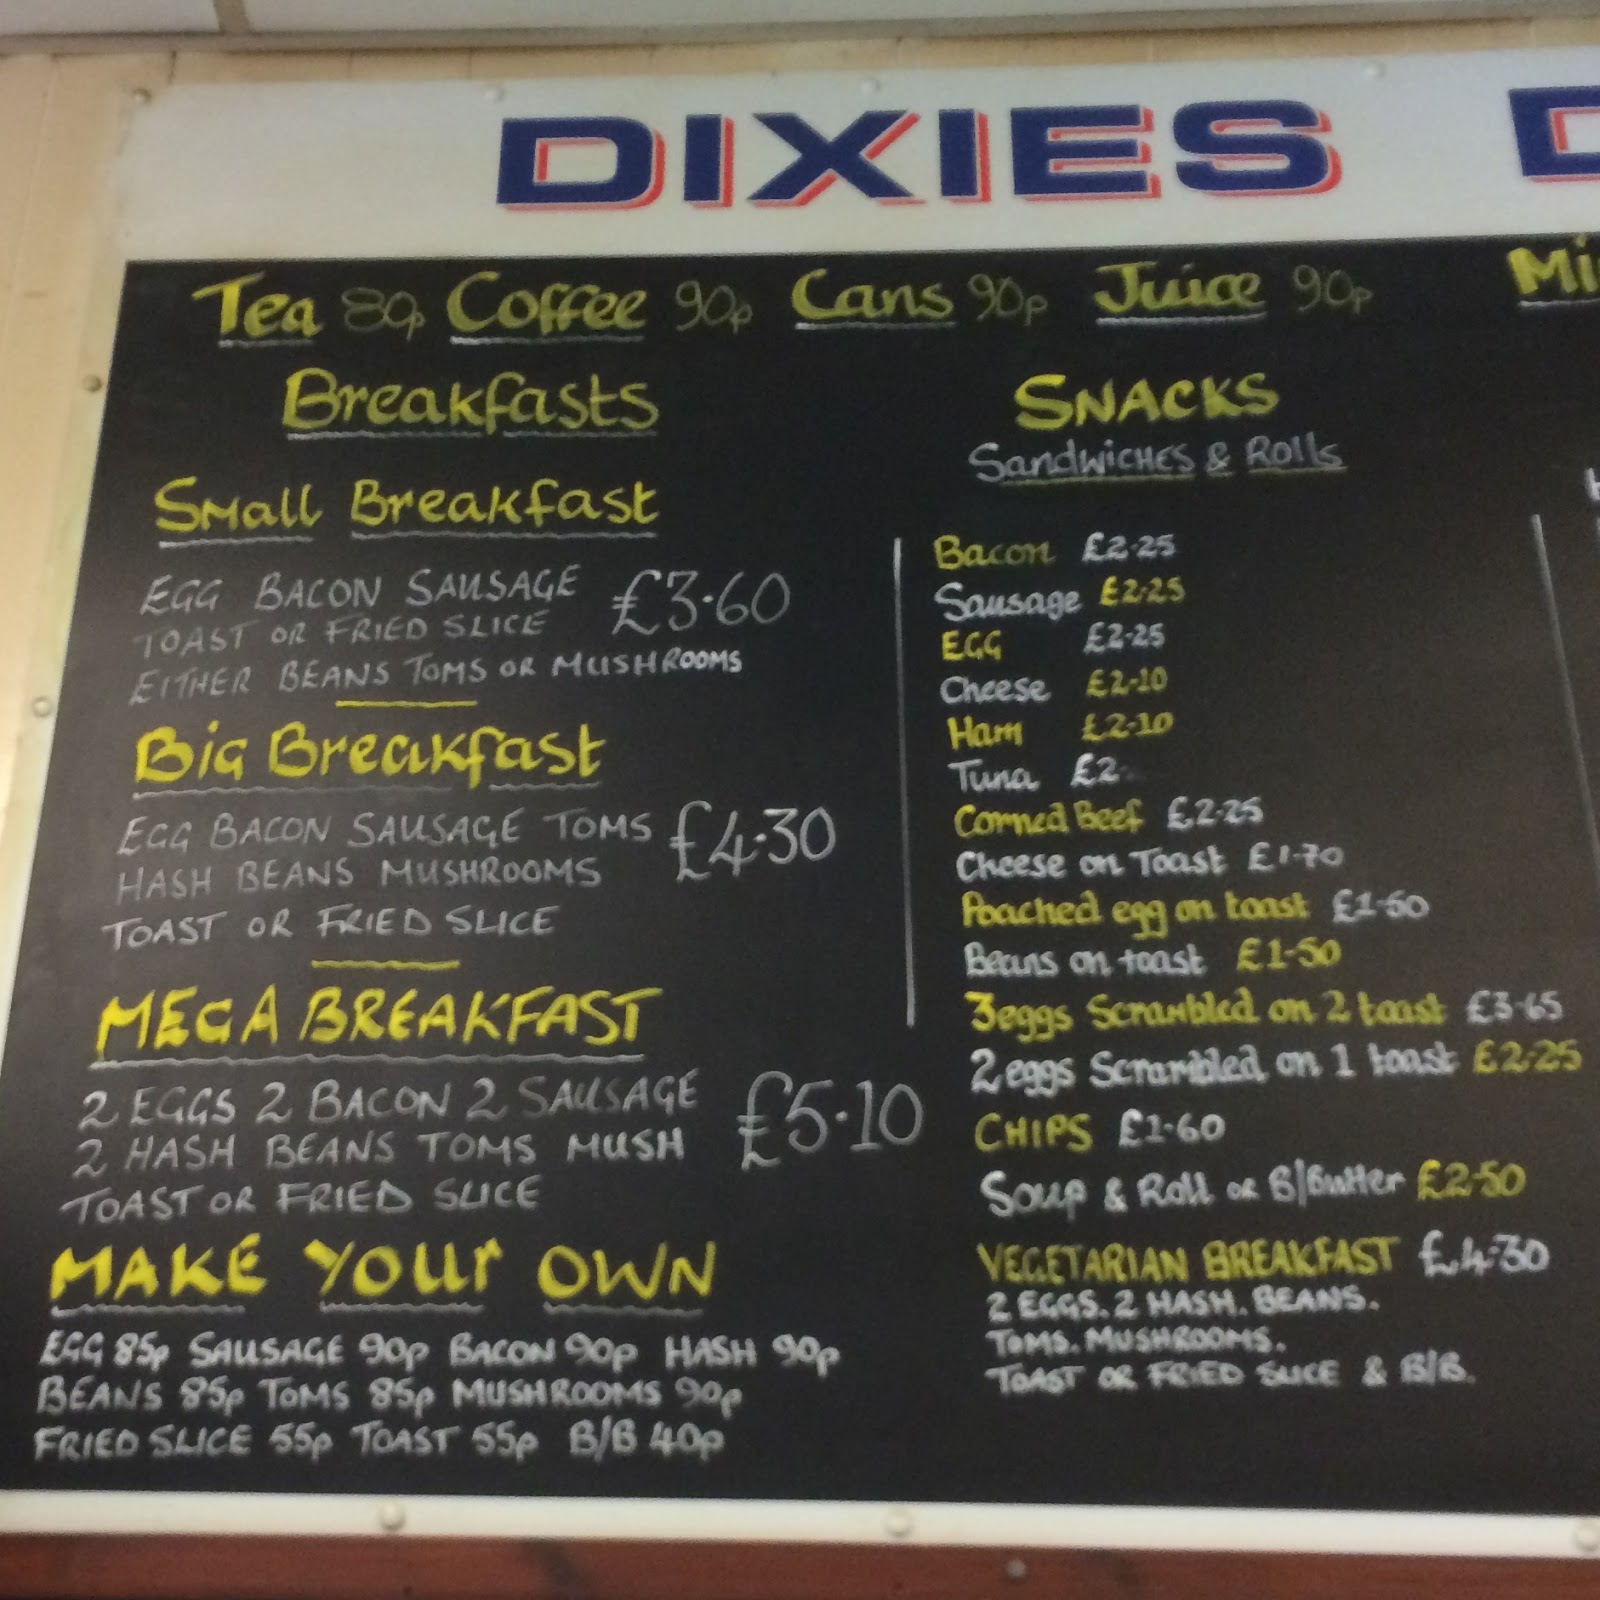 DIXIES
Tea 80p Coffee 90p Cans 90p Juice 90p
Breakfasts
Small Breakfast
EGG BACON SAUSAGE £3.60
TOAST OR FRIED SLICE
EITHER BEANS TOMS OR MUSHROOMS
Big Breakfast
EGG BACON SAUSAGE TOMS £4.30
HASH BEANS MUSHROOMS
TOAST OR FRIED SLICE
MEGA BREAKFAST
2 EGGS 2 BACON 2 SAUSAGE £5.10
2 HASH BEANS TOMS MUSH
TOAST OR FRIED SLICE
MAKE YOUR OWN
EGG 85p SAUSAGE 90p BACON 90p HASH 90p
BEANS 85p TOMS 85p MUSHROOMS 90p
FRIED SLICE 55p TOAST 55p B/B 40p
SNACKS
Sandwiches & Rolls
Bacon £2-25
Sausage £2-25
EGG £2-25
Cheese £2-10
Ham £2-10
Tuna £2-
Corned Beef £2-25
Cheese on Toast £1-70
Poached egg on toast
Beans on toast £1-50
3 eggs Scrambled on 2 toast £3-65
2 eggs Scrambled on 1 toast £2-25
CHIPS £1-60
Soup & Roll or B/Butter £2-50
VEGETARIAN BREAKFAST £4-30
2 EGGS. 2 HASH. BEANS.
TOMS. MUSHROOMS.
TOAST OR FRIED SLICE & B/B.